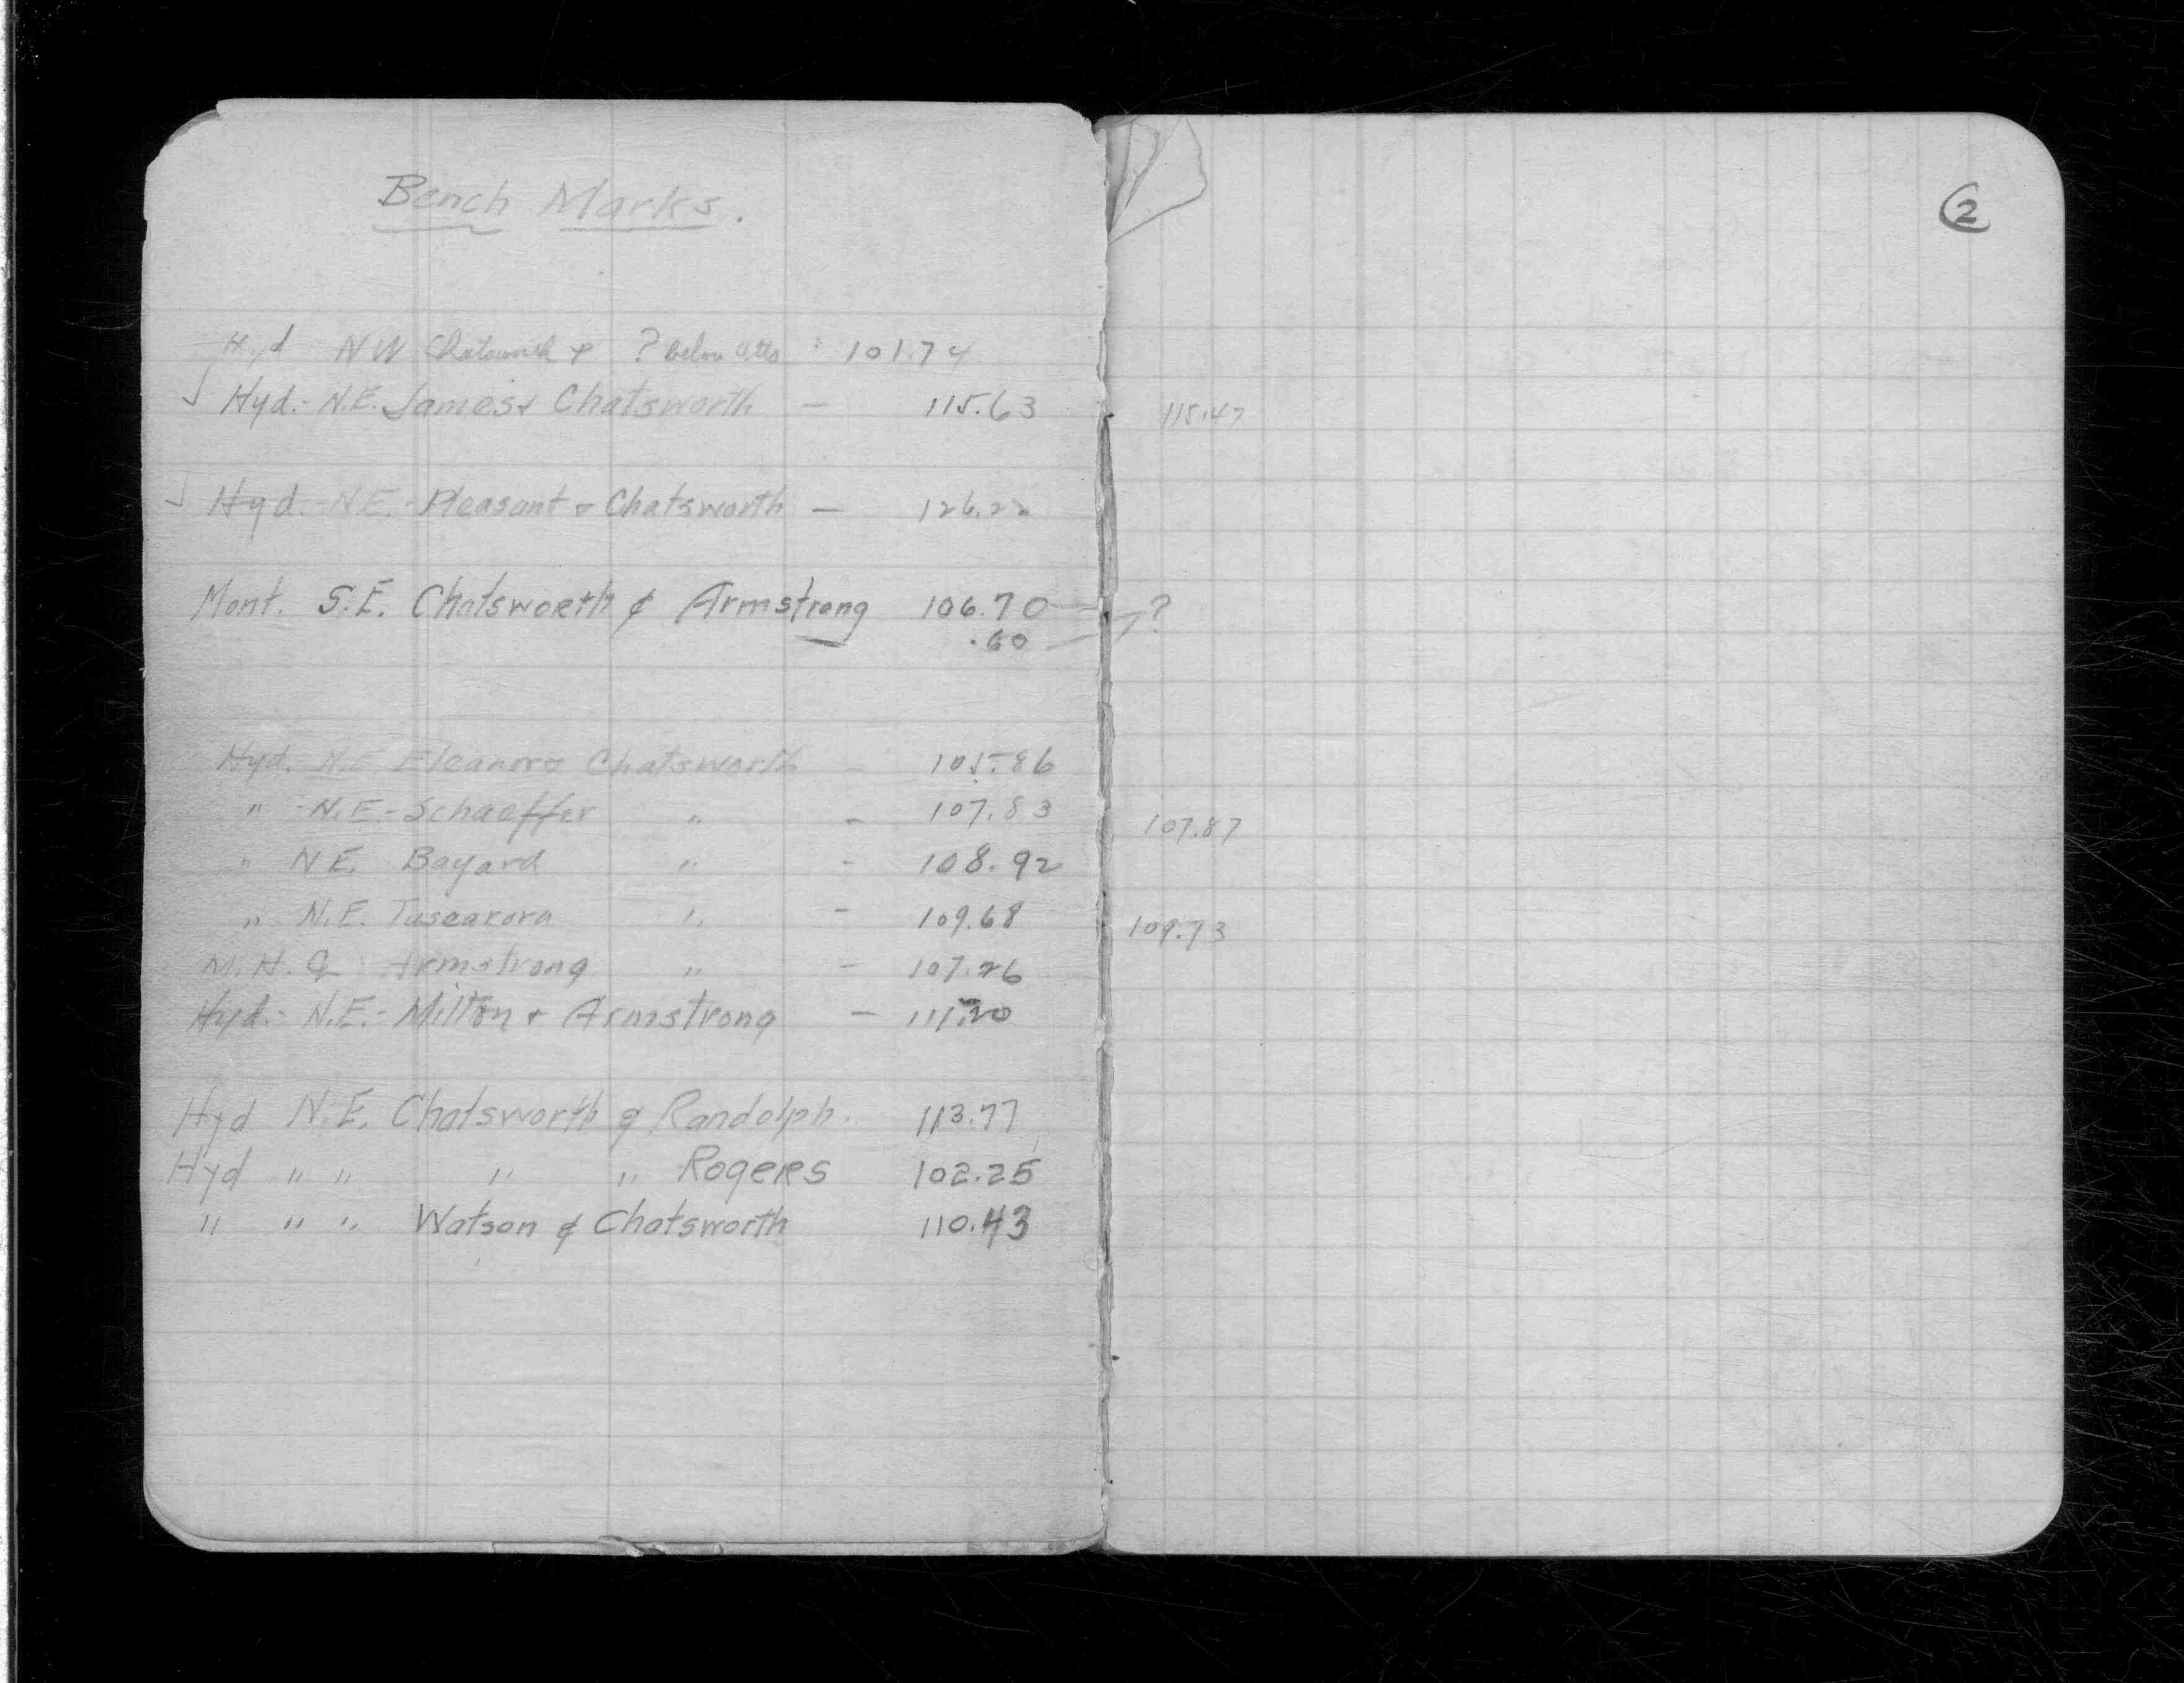 Bench Marks.
②
Hyd NW Chatsworth & ? below Otto : 101.74
√ Hyd.- N.E. James & Chatsworth — 115.63 115.47
√ Hyd.-N.E.-Pleasant & Chatsworth — 126.22
Mont. S.E. Chatsworth & Armstrong 106.70 — ?
.60 —
Hyd. N.E Eleanor & Chatsworth - 105.86
" -N.E.-Schaeffer " - 107.83 107.87
" N E. Bayard " - 108.92
" N.E. Tusearora " - 109.68 109.73
M.H. @ Armstrong " - 107.26
Hyd.- N.E.- Milton & Armstrong — 111.20
Hyd N.E. Chatsworth & Randolph. 113.77
Hyd " " " " Rogers 102.25
" " " Watson & Chatsworth 110.43